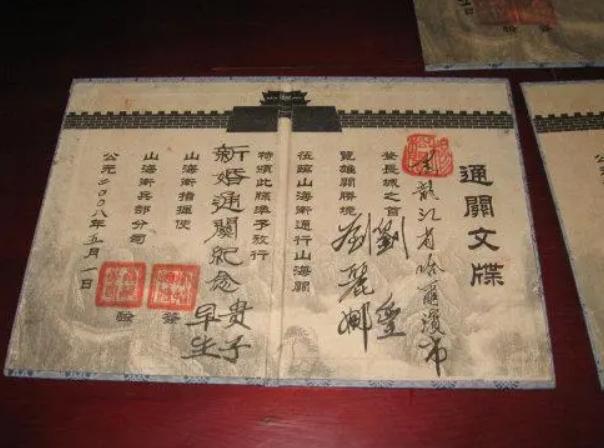 通關文牒
黑龍江省哈爾濱市
登長城之首
劉
覽雄關勝境
劉麗娜
莅臨山海衛通行山海關
特頒此牒準予放行
新婚通關紀念
貴子
早生
山海衛指揮使
簽
山海衛兵部分司
驗
公元二00八年五月一日